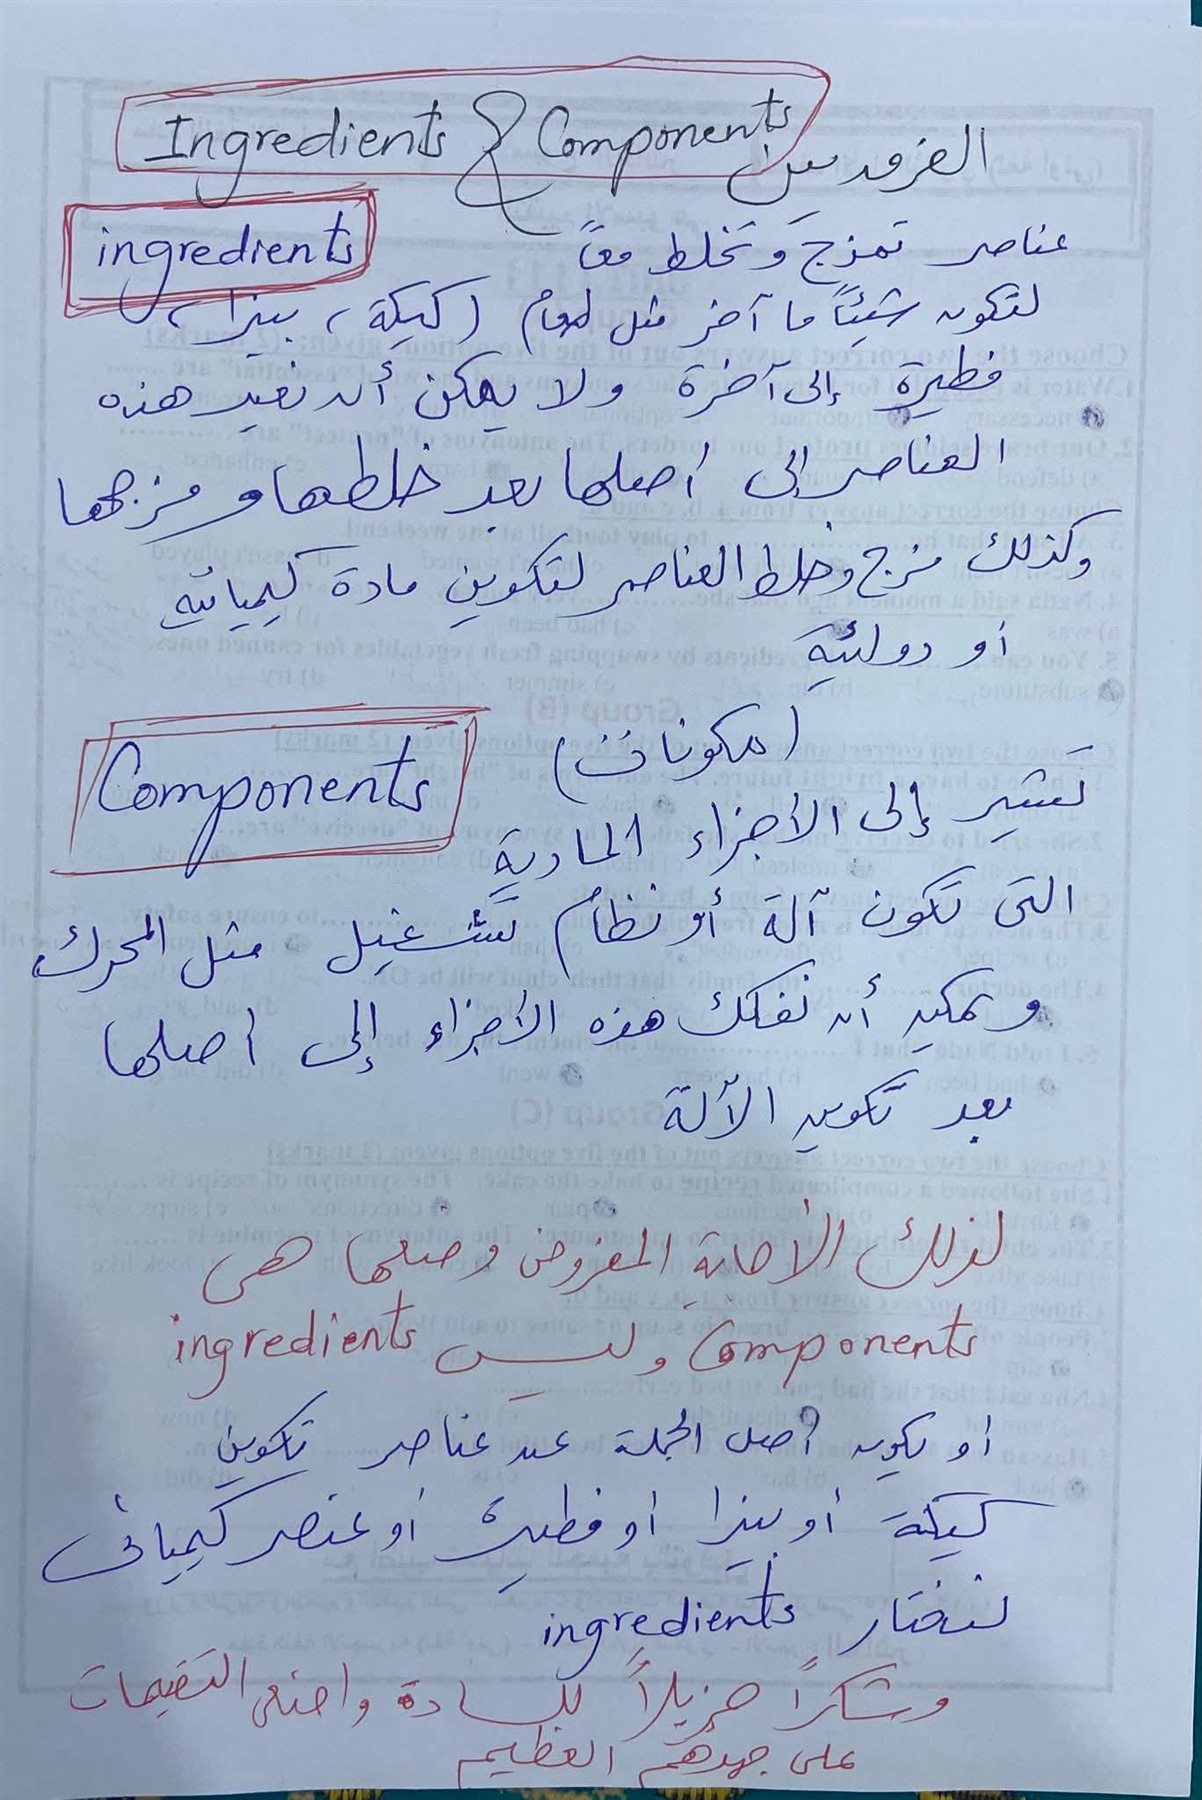 الفرق بين Ingredients & Components
ingredients
عناصر تمزج وتخلط معاً
لتكون شيئاً ما آخر مثل طعام (كيكة، بيتزا،
فطيرة إلى آخرة ولا يمكن أن نعيد هذه
العناصر إلى أصلها بعد خلطها ومزجها
وكذلك مزج وخلط العناصر لتكوين مادة كيميائية
أو دوائية
Components
(مكونات)
تشير إلى الأجزاء المادية
التى تكون آلة أو نظام تشغيل مثل المحرك
ويمكن أن نفكك هذه الأجزاء إلى أصلها
بعد تكوين الآلة
لذلك الأجابة المفروض وضعها هى
Components وليس ingredients
أو يكون أصل الجملة عن عناصر تكوين
كيكة أو بيتزا أو فطيرة أو عنصر كيميائى
لنختار ingredients
وشكراً جزيلاً للسادة واضعى التقييمات
على جهدهم العظيم